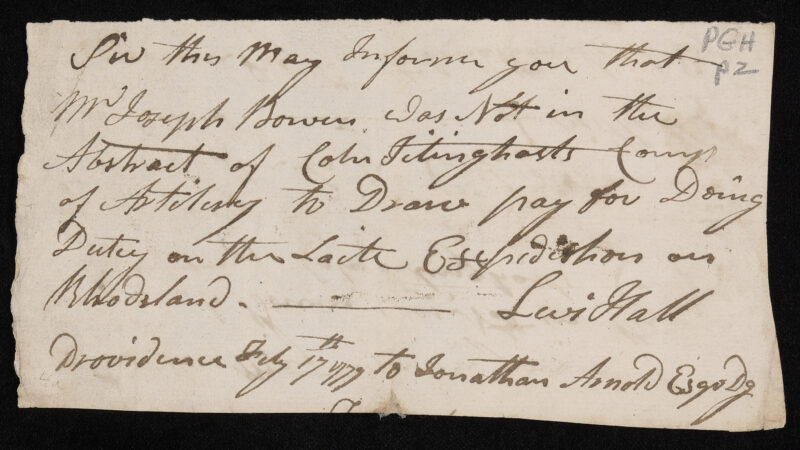 Sir this May Inform you that
PGH
p2
Mr Joseph Bowen was Not in the
Abstract of Coln Tilinghasts Comp
of Artilery to Draw pay for Doing
Duty on the Late Expedition on
Rhodsland. Levi Hall
Providence Feby 17th 1779 to Jonathan Arnold Esqr Dg